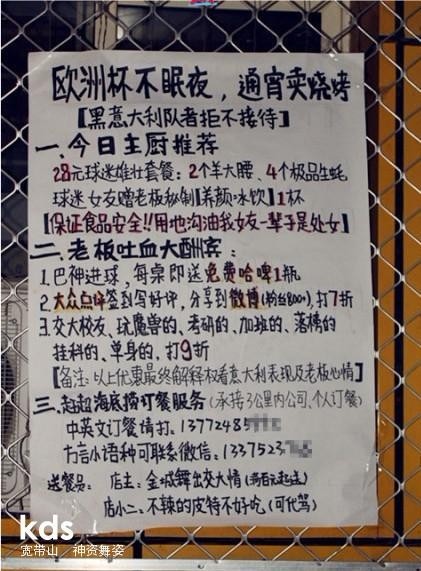 欧洲杯不眠夜，通宵卖烧烤
【黑意大利队者拒不接待】
一、今日主厨推荐
28元球迷雄壮套餐：2个羊大腰、4个极品生蚝
球迷女友赠老板秘制【养颜冰饮】1杯
【保证食品安全!!用地沟油我女友一辈子是处女】
二、老板吐血大酬宾：
1.巴神进球，每桌即送免费哈啤1瓶
2.大众点评签到写好评，分享到微博(粉丝800+)，打7折
3.交大校友、玩魔兽的、考研的、加班的、落榜的
挂科的、单身的，打9折
【备注：以上优惠最终解释权看意大利表现及老板心情】
三、赵赵海底捞订餐服务（承接3公里内公司、个人订餐）
中英文订餐请打：13772485
方言小语种可联系微信：1337523
送餐员： 店主：全城舞出交大情（满百元起送）
店小二：不辣的皮特不好吃（可代驾）
kds
宽带山 神资舞姿